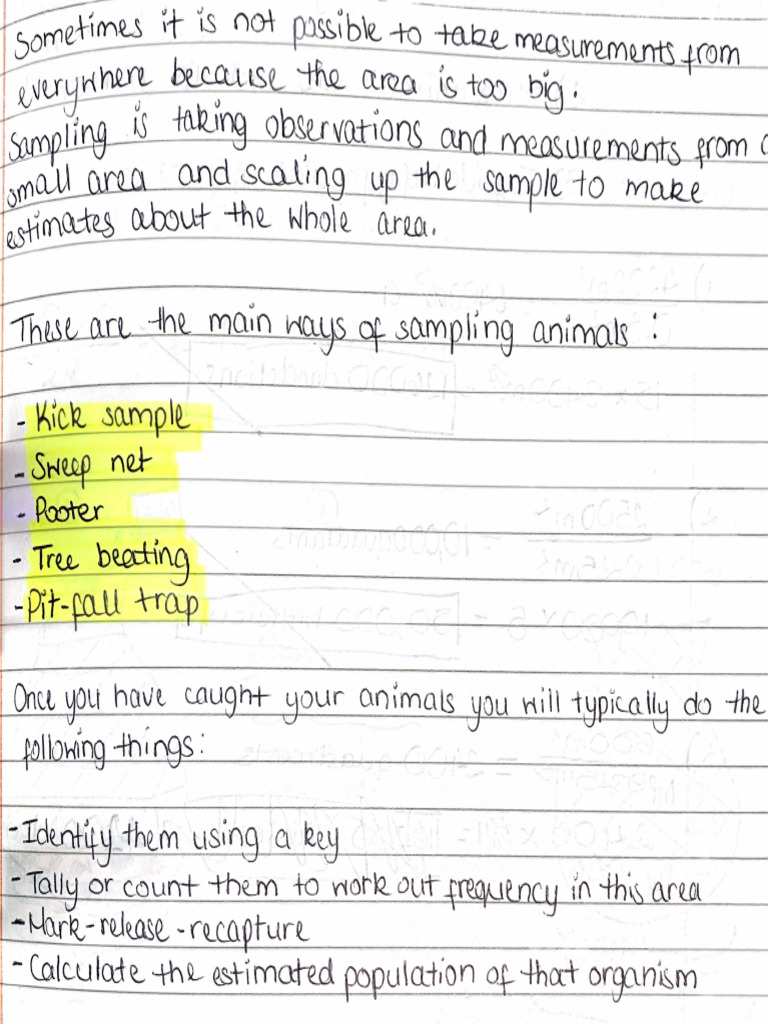 Sometimes it is not possible to take measurements from
everywhere because the area is too big.
Sampling is taking observations and measurements from a
small area and scaling up the sample to make
estimates about the whole area.
These are the main ways of sampling animals :
- Kick sample
- Sweep net
- Pooter
- Tree beating
- Pit-fall trap
Once you have caught your animals you will typically do the
following things:
- Identify them using a key
- Tally or count them to work out frequency in this area
- Mark-release-recapture
- Calculate the estimated population of that organism